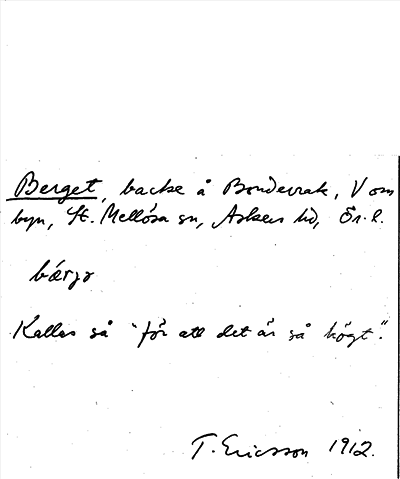 Berget, backe å Bondevrak, V om
byn, St. Mellösa sn, Askers hd, Ör. l.
bærjə
Kallas så "för att det är så högt".
T. Ericsson 1912.